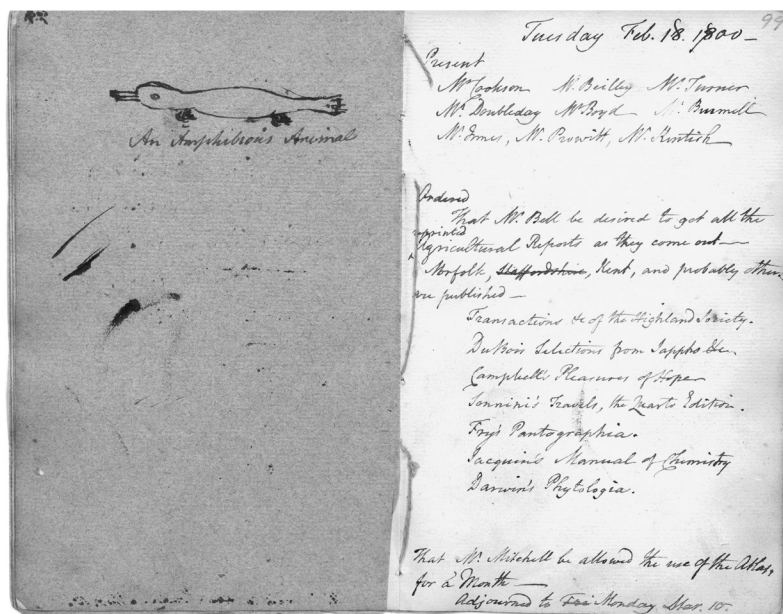 An Amphibious Animal
99
Tuesday Feb. 18. 1800 —
Present
Mr Cookson Mr. Beilby Mr. Turner
Mr. Doubleday Mr Boyd Mr. Burnell
Mr. Emes, Mr. Prowitt, Mr. Kentish
Ordered
That Mr. Bell be desired to get all the
reprinted
Agricultural Reports as they come out —
Norfolk, Staffordshire, Kent, and probably others
are published —
Transactions &c of the Highland Society.
DuBois Selections from Sappho &c
Campbell's Pleasures of Hope
Sonnini's Travels, the Quarto Edition.
Fry's Pantographia.
Jacquin's Manual of Chemistry
Darwin's Phytologia.
That Mr. Mitchell be allowed the use of the Atlas,
for a Month —
Adjourned to Monday Mar. 10.